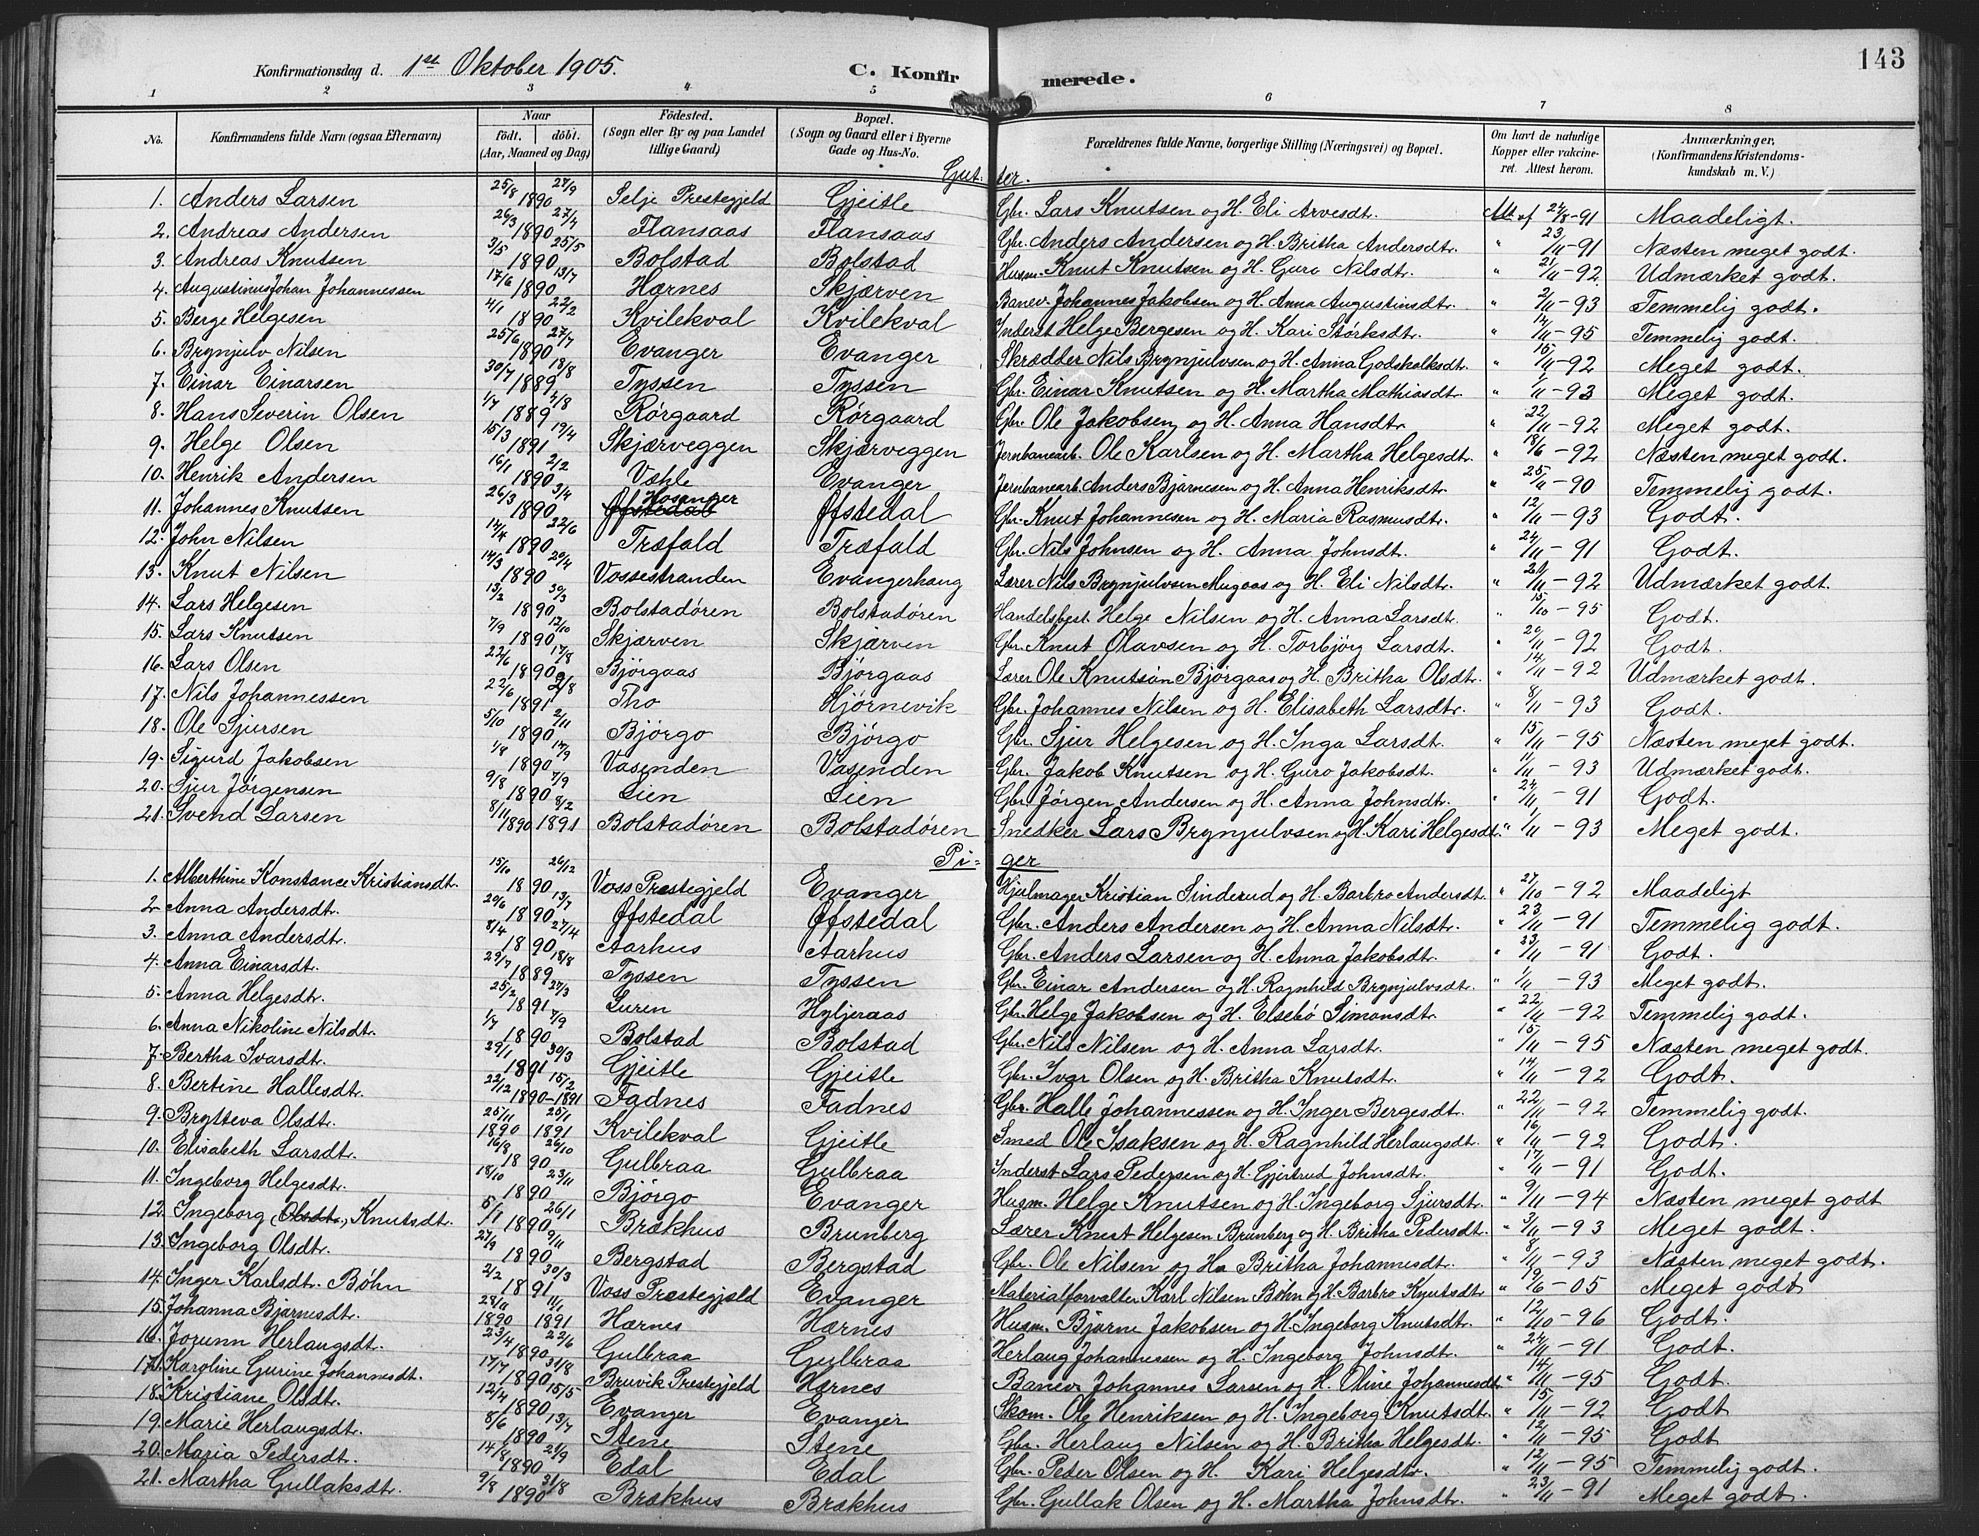 143
Konfirmationsdag d. 1st Oktober 1905. C. Konfirmerede.
1 2 3 4 5 6 7 8
No. Konfirmandens fulde Navn (ogsaa Efternavn) Naar født. døbt. (Aar, Maaned og Dag) Fødested. (Sogn eller By og paa Landet tillige Gaard) Bopæl. (Sogn og Gaard eller i Byerne Gade og Hus-No. Forældrenes fulde Navne, borgerlige Stilling (Næringsvei) og Bopæl. Om havt de naturlige Kopper eller vakcineret. Attest herom. Anmærkninger. (Konfirmandens Kristendomskundskab m. V.)
Gutter.
1. Anders Larsen 25/8 1890 27/9 Selje Prestegjeld Gjeitle Gbr. Lars Knutsen og H. Eli Arvesdt. Att af 24/8-91 Maadeligt.
2. Andreas Andersen 26/3 1890 27/4 Flansaas Flansaas Gbr. Anders Andersen og H. Britha Andersdt. " 23/11-91 Næsten meget godt.
3. Andreas Knutsen 3/5 1890 25/5 Bolstad Bolstad Husm. Knut Knutsen og H. Guro Nilsdt. " 21/11-92 Udmærket godt.
4. Augustinus Johan Johannessen 17/6 1890 13/7 Hærnes Skjærven Banev. Johannes Jakobsen og H. Anna Augustinsdt. " 2/11-93 Temmelig godt.
5. Berge Helgesen 4/1 1890 22/2 Kvilekval Kvilekval Inderst Helge Bergesen og H. Kari Størksdt. " 14/11-95 Temmelig godt.
6. Brynjulv Nilsen 25/6 1890 27/7 Evanger Evanger Skrædder Nils Brynjulvsen og H. Anna Godskalksdt. " 15/11-92 Meget godt.
7. Einar Einarsen 30/7 1889 18/8 Tyssen Tyssen Gbr. Einar Knutsen og H. Martha Mathiasdt. " 1/11-93 Meget godt.
8. Hans Severin Olsen 1/7 1889 4/8 Rørgaard Rørgaard Gbr. Ole Jakobsen og H. Anna Hansdtr " 22/11-92 Meget godt.
9. Helge Olsen 15/3 1891 19/4 Skjærveggen Skjærveggen Jernbanearb. Ole Karlsen og H. Martha Helgesdt. " 18/6-92 Næsten meget godt.
10. Henrik Andersen 16/1 1890 2/2 Væhle Evanger Jernbanearb. Anders Bjarnesen og H. Anna Henriksdt. " 25/11-90 Temmelig godt.
11. Johannes Knutsen 26/3 1890 3/4 Øfstedal Hosanger Øfstedal Gbr. Knut Johannesen og H. Maria Rasmusdt. " 12/11-93 Godt.
12. John Nilsen 14/4 1890 22/6 Træfald Træfald Gbr. Nils Johnsen og H. Anna Johnsdt. " 24/11-91 Godt.
13. Knut Nilsen 14/3 1890 20/4 Vossestranden Evangerhaug Lærer Nils Brynjulvsen Mugaas og H. Eli Nilsdt. " 20/11-92 Udmærket godt.
14. Lars Helgesen 13/2 1890 30/3 Bolstadøren Bolstadøren Handelsbest. Helge Nilsen og H. Anna Larsdt. " 15/10-95 Godt.
15. Lars Knutsen 7/9 1890 12/10 Skjærven Skjærven Gbr. Knut Olavsen og H. Torbjør Larsdt. " 20/11-92 Godt.
16. Lars Olsen 22/6 1890 17/8 Bjørgaas Bjørgaas Lærer Ole Knutsøn Bjørgaas og H. Britha Olsdt. " 14/11-92 Udmærket godt.
17. Nils Johannessen 22/6 1891 2/8 Tho Hjørnevik Gbr. Johannes Nilsen og H. Elisabeth Larsdt. " 8/11-93 Godt.
18. Ole Sjursen 5/10 1890 2/11 Bjørgo Bjørgo Gbr. Sjur Helgesen og H. Inga Larsdt. " 15/11-95 Næsten meget godt.
19. Sigurd Jakobsen 1/8 1890 14/9 Vasenden Vasenden Gbr. Jakob Knutsen og H. Guro Jakobsdt. " 11/11-93 Udmærket godt.
20. Sjur Jørgensen 9/8 1890 7/9 Lien Lien Gbr. Jørgen Andersen og H. Anna Johnsdt. " 24/11-91 Godt.
21. Svend Larsen 8/11 1890 8/2 1891 Bolstadøren Bolstadøren Snedker Lars Brynjulvsen og H. Kari Helgesdt. " 1/11-93 Meget godt.
Piger
1. Alberthine Konstance Kristiansdt. 15/10 1890 26/12 Voss Prestegjeld Evanger Hjulmager Kristian Sinderud og H. Barbro Andersdt. " 27/10-92 Maadeligt
2. Anna Andersdt. 29/6 1890 13/7 Øfstedal Øfstedal Gbr. Anders Andersen og H. Anna Nilsdt. " 23/11-91 Temmelig godt.
3. Anna Andersdt. 8/4 1890 27/4 Aarhus Aarhus Gbr. Anders Larsen og H. Anna Jakobsdt. " 23/11-91 Godt.
4. Anna Einarsdt. 29/7 1889 18/8 Tyssen Tyssen Gbr. Einar Andersen og H. Ragnhild Brynjulvsdt. " 1/11-93 Meget godt.
5. Anna Helgesdt. 25/2 1891 27/3 Luren Hyljeraas Gbr. Helge Jakobsen og H. Elsebø Simonsdt. " 22/11-92 Temmelig godt.
6. Anna Nikoline Nilsdt. 1/7 1890 7/9 Bolstad Bolstad Gbr. Nils Nilsen og H. Anna Larsdt. " 15/11-95 Næsten meget godt.
7. Bertha Ivarsdt. 29/1 1891 30/3 Gjeitle Gjeitle Gbr. Ivar Olsen og H. Britha Knutsdt. " 14/11-92 Godt.
8. Bertine Hallesdt. 22/12 1890-1891 15/2 Fadnes Fadnes Gbr. Halle Johannessen og H. Inger Bergesdt. " 22/11-92 Temmelig godt.
9. Brytteva Olsdt. 25/11 1890 25/1 1891 Kvilekval Gjeitle Smed Ole Isaksen og H. Ragnhild Herlaugsdt. " 16/11-92 Godt.
10. Elisabeth Larsdt. 16/8 1890 26/10 Gulbraa Gulbraa Inderst Lars Pedersen og H. Gjertrud Johnsdt. " 17/11-91 Godt.
11. Ingeborg Helgesdt. 18/10 1890 23/11 Bjørgo Evanger Husm. Helge Knutsen og H. Ingeborg Sjursdt. " 9/11-94 Næsten meget godt
12. Ingeborg (Olsdt.) Knutsdt. 5/1 1890 26/1 Brækhus Brunberg Lærer Knut Helgesen Brunberg og H. Britha Pedersdt. " 3/11-93 Meget godt.
13. Ingeborg Olsdt. 27/9 1890 9/11 Bergstad Bergstad Gbr. Ole Nilsen og Ha Britha Johannesdt. " 8/11-93 Næsten meget godt.
14. Inger Karlsdt. Bøhn 2/2 1891 30/3 Voss Prestegjeld Evanger Materialforvalter Karl Nilsen Bøhn og H. Barbro Knutsdt. " 19/6-05 Meget godt
15. Johanna Bjarnesdt. 28/11 1890 11/1 1891 Hærnes Hærnes Husm. Bjarne Jakobsen og H. Ingeborg Knutsdt. " 12/10-96 Godt.
16. Jorunn Herlaugsdt. 23/4 1890 22/6 Gulbraa Gulbraa Herlaug Johannessen og H. Ingeborg Johnsdt. " 24/11-91 Godt.
17. Karoline Gurine Johannesdt. 17/7 1890 31/8 Bruvik Prestegjeld Hærnes Banev. Johannes Larsen og H. Oline Johannesdt. " 14/11-95 Godt.
18. Kristiane Olsdt. 12/4 1890 15/5 Evanger Evanger Skom. Ole Henriksen og H. Ingeborg Knutsdt. " 15/11-92 Godt
19. Marie Herlaugsdt. 8/6 1890 13/7 Stene Stene Gbr. Herlaug Nilsen og H. Britha Helgesdt. " 12/11-95 Godt
20. Maria Pedersdt. 14/8 1890 21/9 Edal Edal Gbr. Peder Olsen og H. Kari Helgesdt. " 12/11-95 Temmelig godt.
21. Martha Gullaksdt. 9/8 1890 31/8 Brækhus Brækhus Gbr. Gullak Olsen og H. Martha Johnsdt. " 23/11-91 Meget godt.